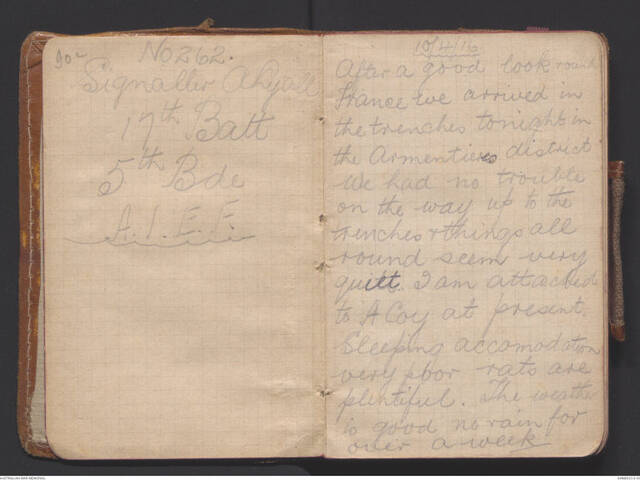 No 262.
Signaller A Ryall
17th Batt
5th Bde
A.I.E.F.
10/4/16
After a good look round
France we arrived in
the trenches tonight in
the Armentieres district
We had no trouble
on the way up to the
trenches & things all
round seem very
quiett. I am attached
to A Coy at present.
Sleeping accomodation
very poor rats are
plentiful. The weather
is good no rain for
over a week
AUSTRALIAN WAR MEMORIAL